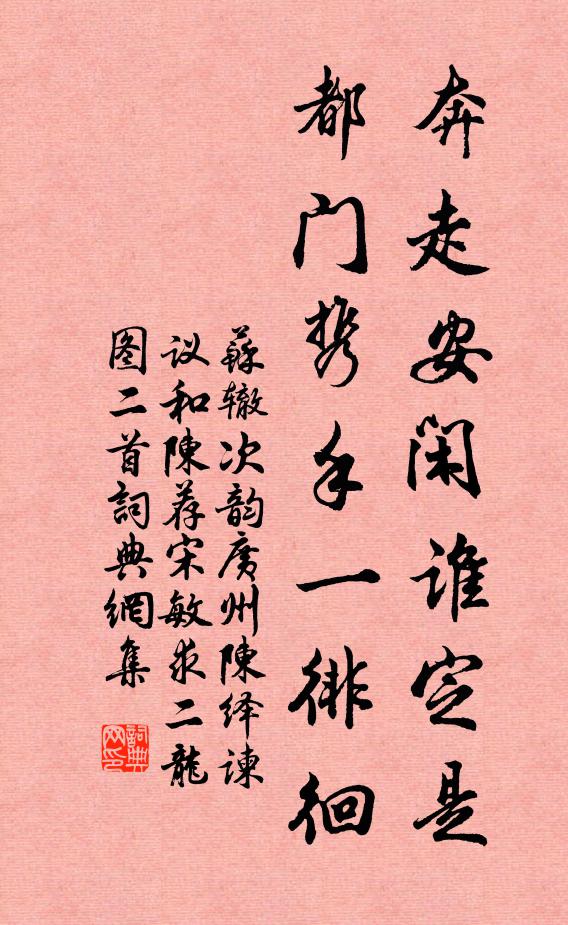 奔走安闲谁定是
都门携手一徘徊
蘇辙次韵廣州陳绎谏
议和陳荐宋敏求二龍
图二首詞典網集
詞典
网印